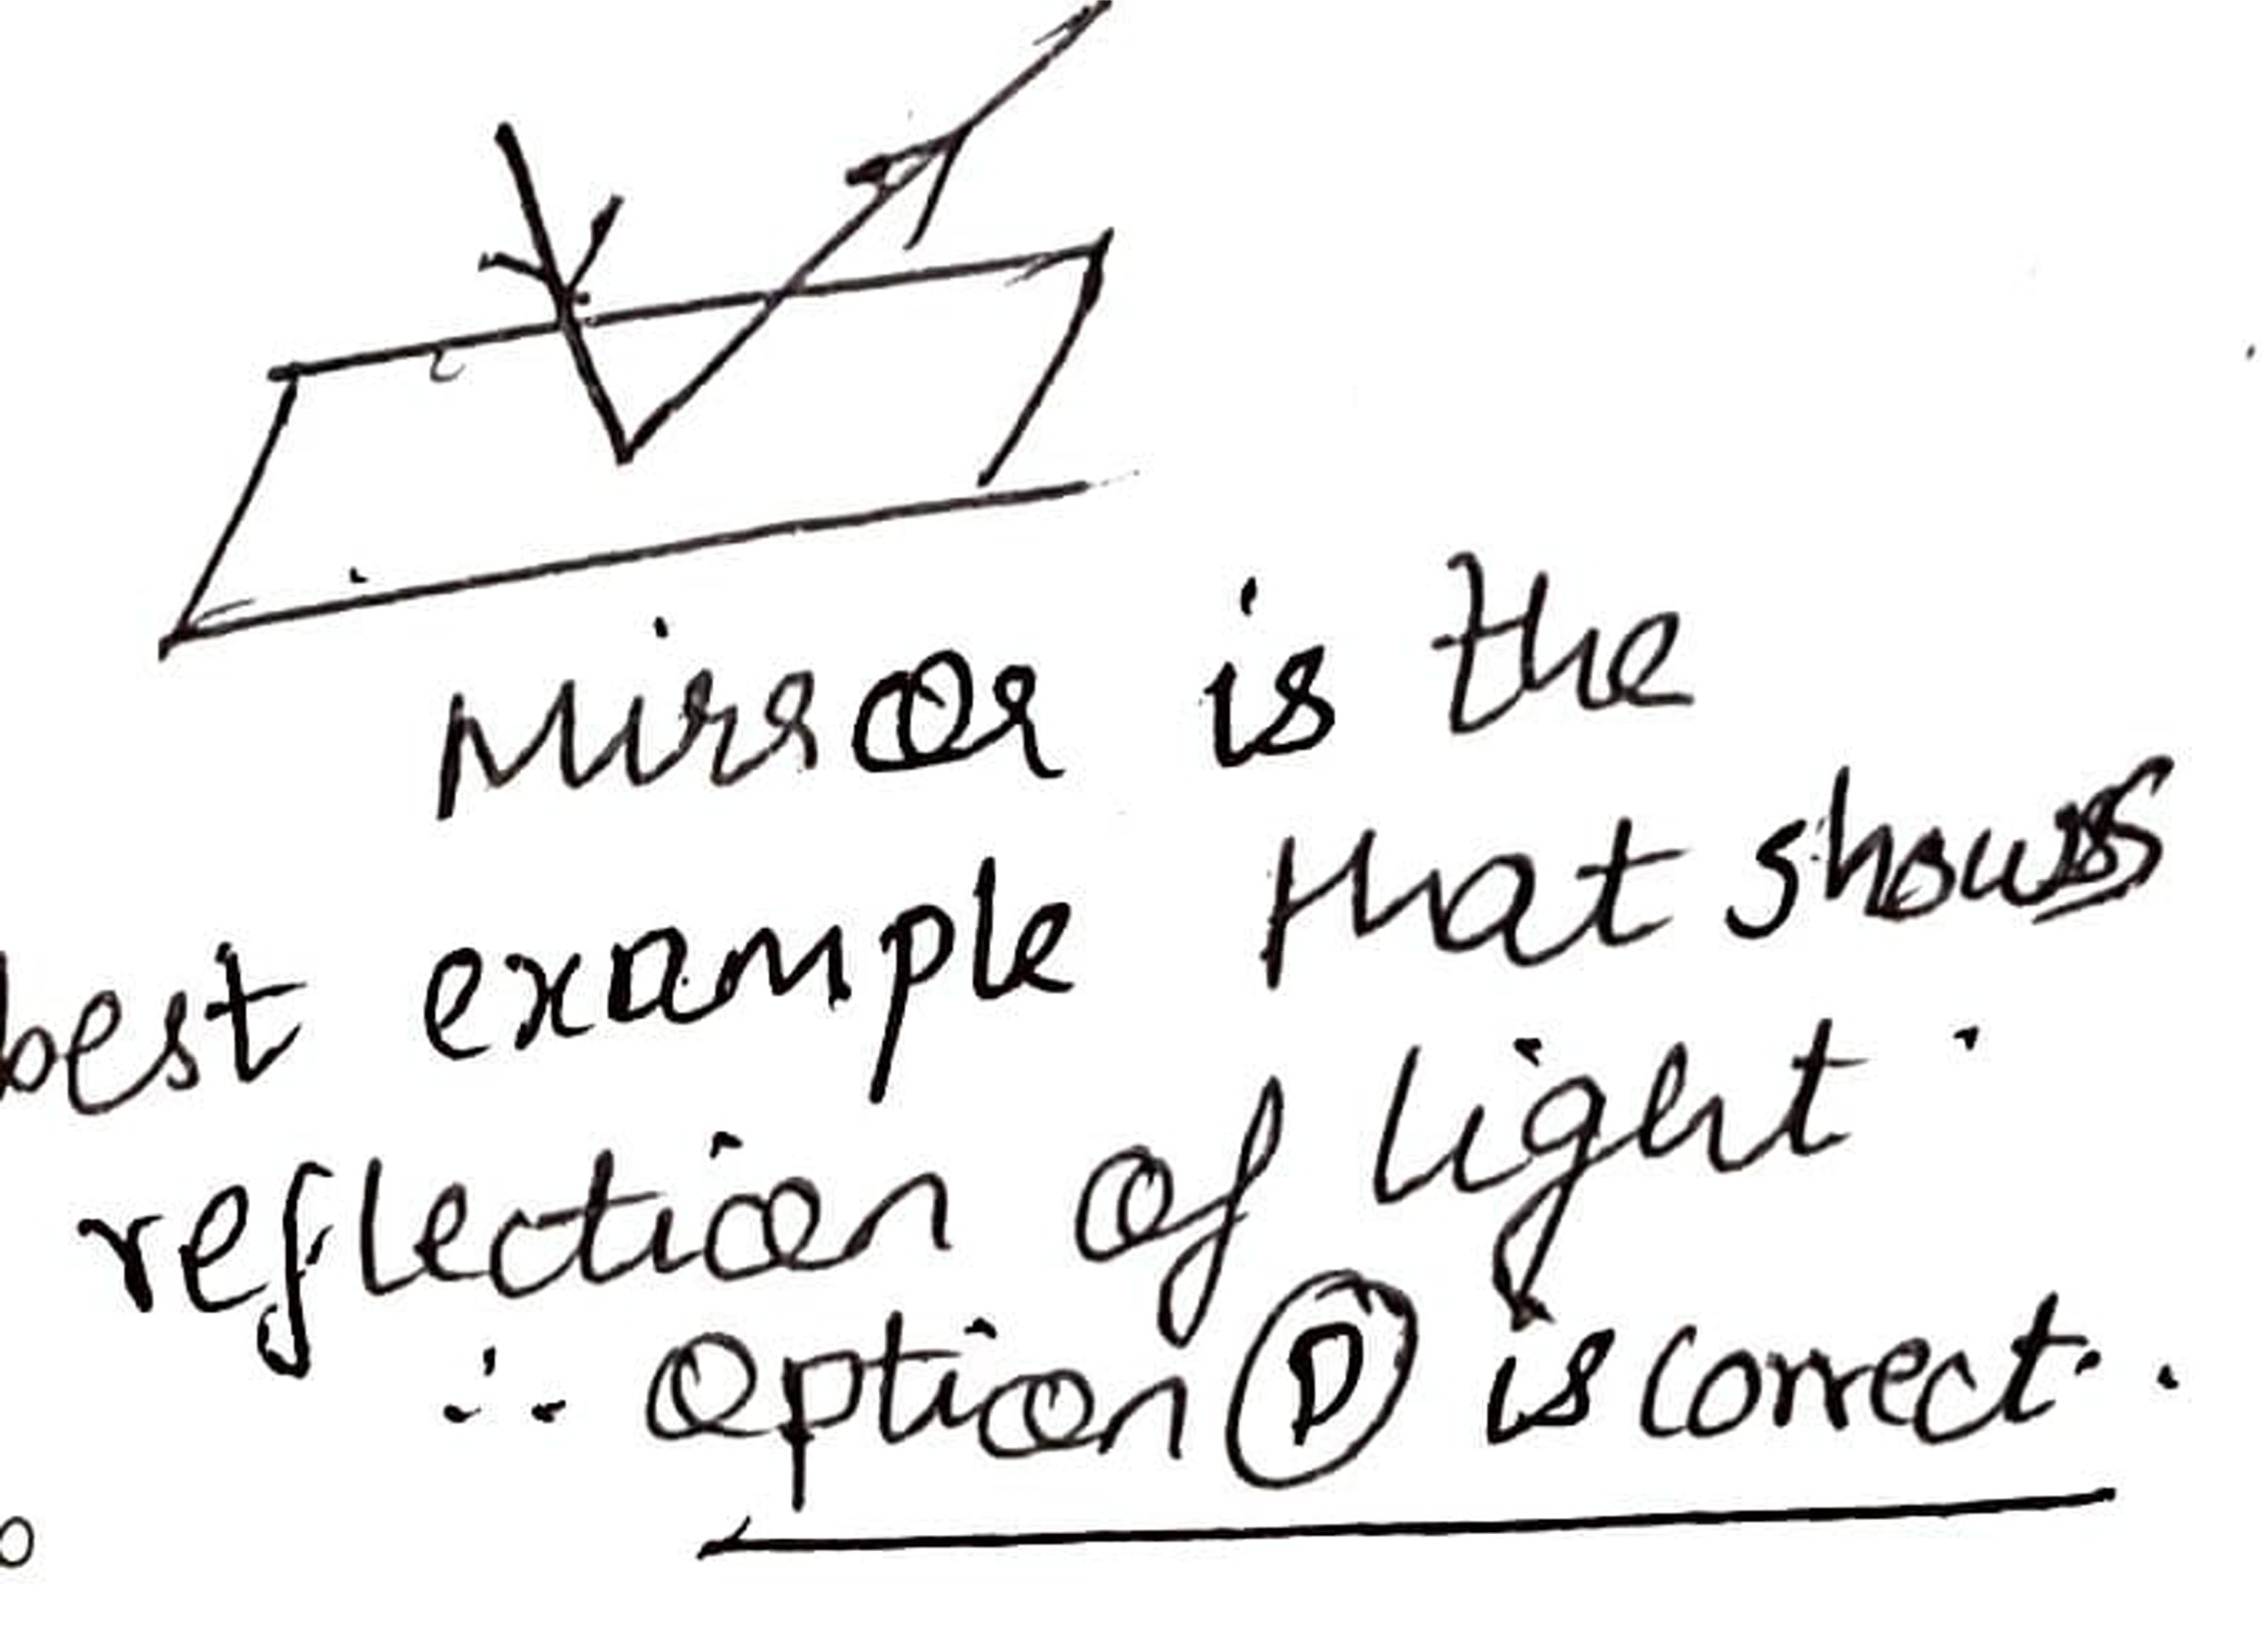 Mirror is the
best example that shows
reflection of light.
∴ Option D is correct.